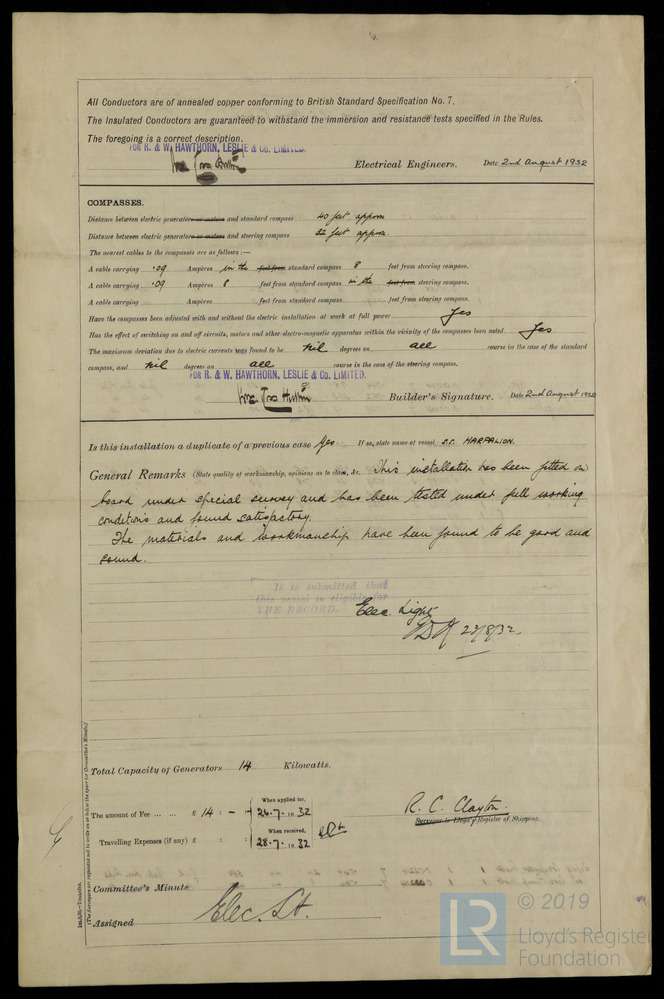 All Conductors are of annealed copper conforming to British Standard Specification No. 7.
The Insulated Conductors are guaranteed to withstand the immersion and resistance tests specified in the Rules.
The foregoing is a correct description.
FOR R. & W. HAWTHORN, LESLIE & CO. LIMITED.
Electrical Engineers. Date 2nd August 1932
COMPASSES.
Distance between electric generators or motors and standard compass 40 feet approx
Distance between electric generators or motors and steering compass 32 feet approx.
The nearest cables to the compasses are as follows:—
A cable carrying .09 Ampères in the feet from standard compass 8 feet from steering compass.
A cable carrying .09 Ampères 8 feet from standard compass in the feet from steering compass.
A cable carrying Ampères feet from standard compass feet from steering compass.
Have the compasses been adjusted with and without the electric installation at work at full power Yes
Has the effect of switching on and off circuits, motors and other electro-magnetic apparatus within the vicinity of the compasses been noted Yes
The maximum deviation due to electric currents was found to be Nil degrees on all course in the case of the standard
compass, and Nil degrees on all course in the case of the steering compass.
FOR R. & W. HAWTHORN, LESLIE & CO. LIMITED.
Builder's Signature. Date 2nd August 1932
Is this installation a duplicate of a previous case Yes. If so, state name of vessel S.S. HARPALION.
General Remarks (State quality of workmanship, opinions as to class, &c. This installation has been fitted on
board under special survey and has been tested under full working
conditions and found satisfactory.
The materials and workmanship have been found to be good and
sound.
It is submitted that
this vessel is eligible for
THE RECORD. Elec. Light
23/8/32.
Total Capacity of Generators 14 Kilowatts.
The amount of Fee ... ... £ 14 : - : - When applied for, 26.7.1932
Travelling Expenses (if any) £ : : When received, 28.7.1932
R. C. Clayton.
Surveyor to Lloyd's Register of Shipping.
Committee's Minute
Assigned Elec. Lt.
(The Surveyors are requested not to write on or below the space for Committee's Minute.)
© 2019
LR
Lloyd's Register
Foundation